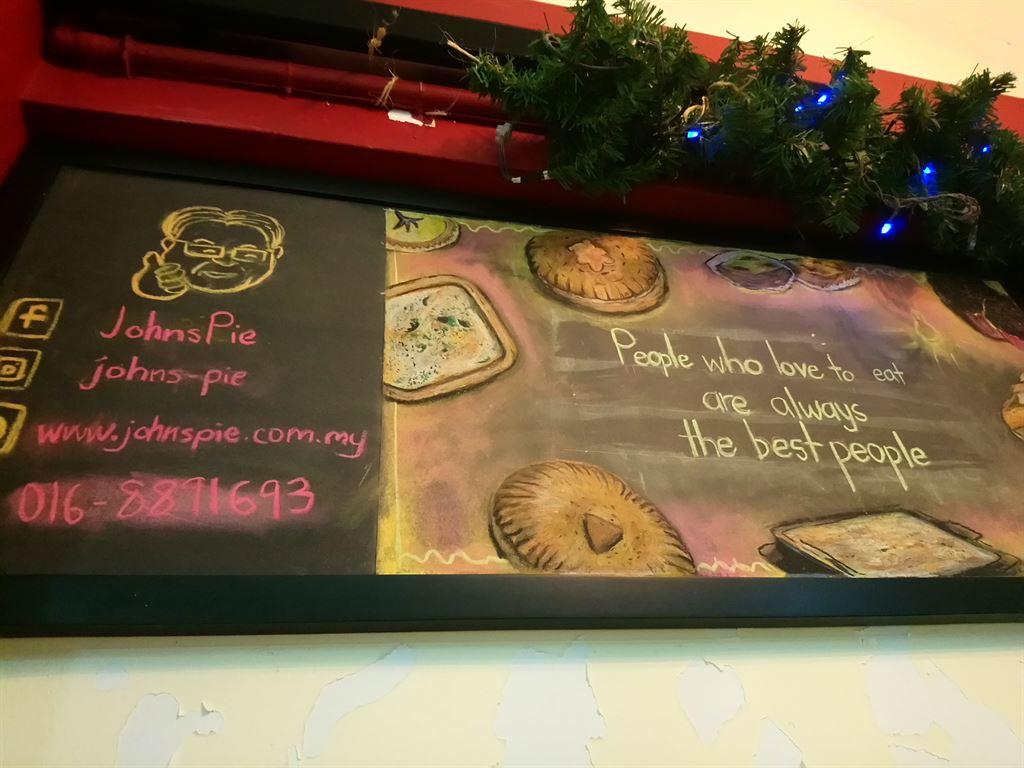 JohnsPie
johns-pie
www.johnspie.com.my
016-8891693
People who love to eat
are always
the best people